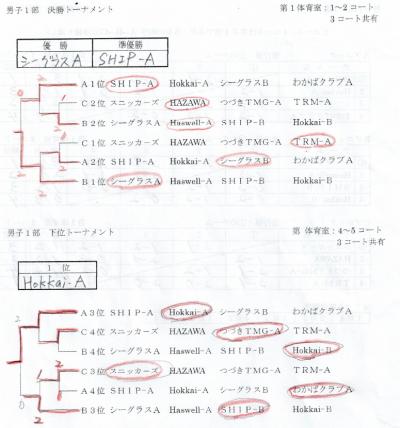 男子1部 決勝トーナメント
第1体育室:1~2コート
3コート共有
優勝 準優勝
シーグラスA SHIP-A
A1位 SHIP-A Hokkai-A シーグラスB わかばクラブA
C2位 スニッカーズ HAZAWA つづきTMG-A TRM-A
B2位 シーグラスA Haswell-A SHIP-B Hokkai-B
C1位 スニッカーズ HAZAWA つづきTMG-A TRM-A
A2位 SHIP-A Hokkai-A シーグラスB わかばクラブA
B1位 シーグラスA Haswell-A SHIP-B Hokkai-B
男子1部 下位トーナメント
第 体育室:4~5コート
3コート共有
1位
Hokkai-A
A3位 SHIP-A Hokkai-A シーグラスB わかばクラブA
C4位 スニッカーズ HAZAWA つづきTMG-A TRM-A
B4位 シーグラスA Haswell-A SHIP-B Hokkai-B
C3位 スニッカーズ HAZAWA つづきTMG-A TRM-A
A4位 SHIP-A Hokkai-A シーグラスB わかばクラブA
B3位 シーグラスA Haswell-A SHIP-B Hokkai-B